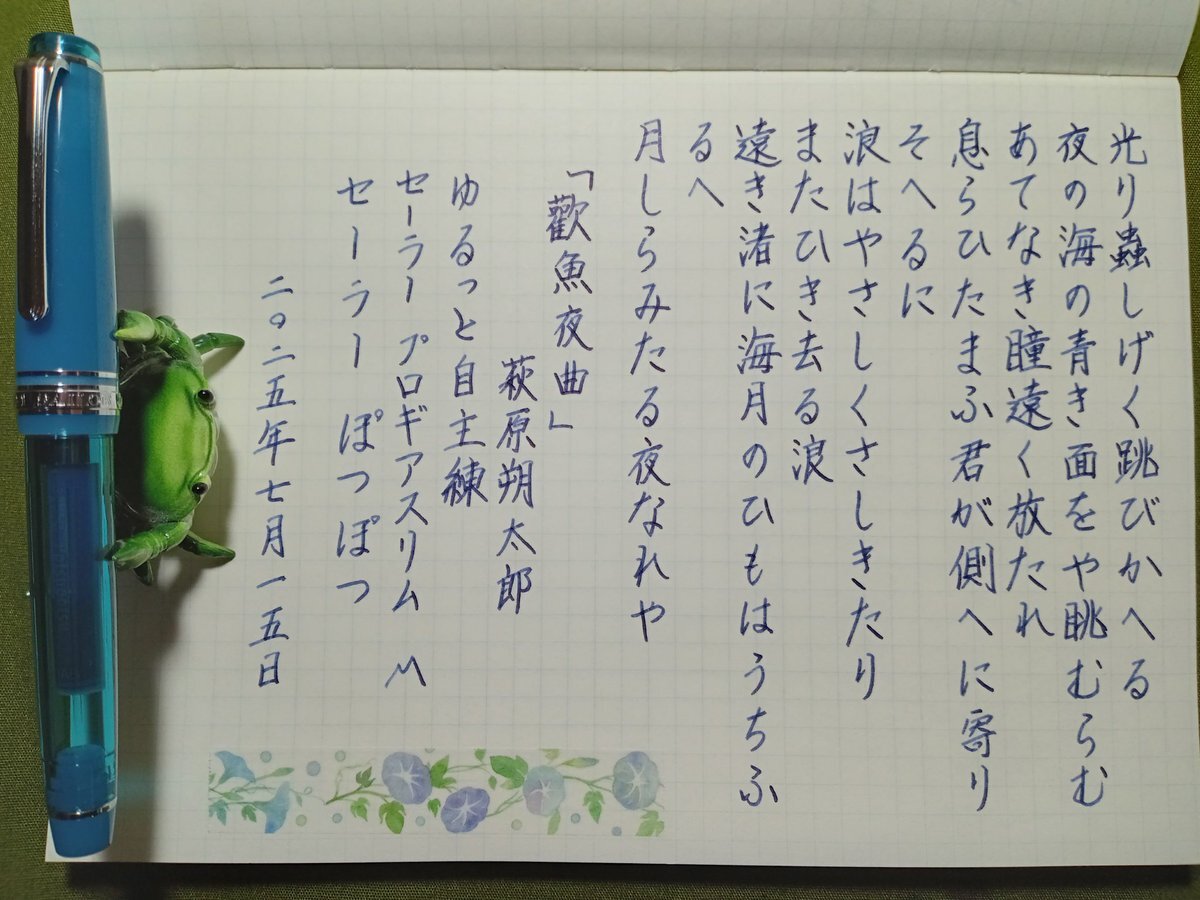 光り蟲しげく跳びかへる
夜の海の青き面をや眺むらむ
あてなき瞳遠く放たれ
息らひたまふ君が側へに寄り
そへるに
浪はやさしくさしきたり
またひき去る浪
遠き渚に海月のひもはうちふ
るへ
月しらみたる夜なれや
「歡魚夜曲」
萩原朔太郎
ゆるっと自主練
セーラー プロギアスリム M
セーラー ぽつぽつ
二〇二五年七月一五日